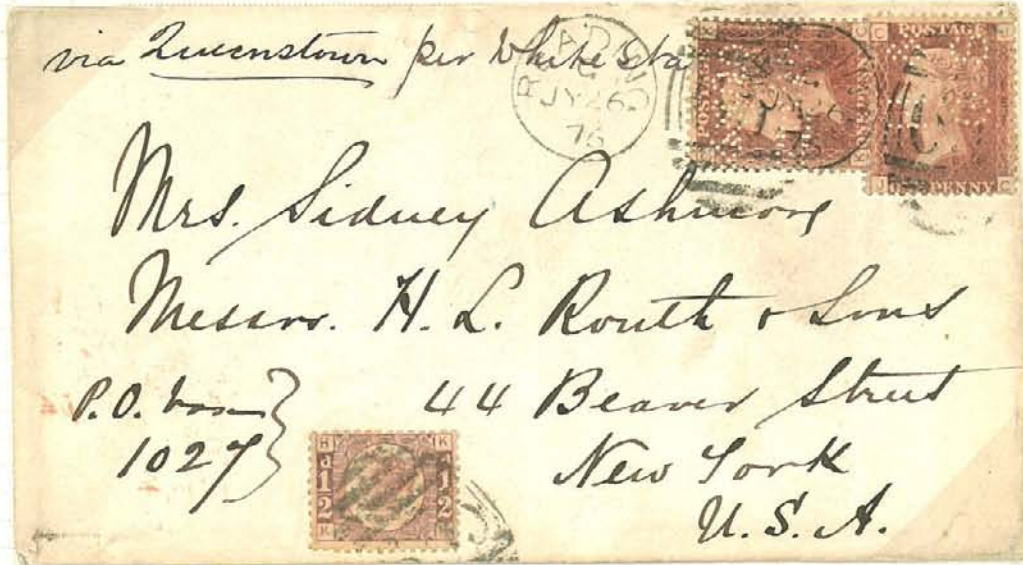 via Queenstown per White Sta
READING
C
JY 26
76
POSTAGE
ONE PENNY
Mrs. Sidney Ashmore
Messrs. H. L. Routh & Sons
P.O. box 44 Beaver Street
1027 New York
U.S.A.
H K
1/2 1/2